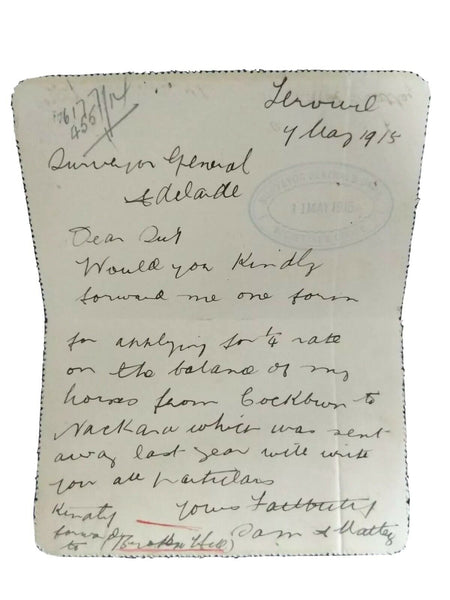 7617/14
4567
Terowie
7 May 1915
Surveyor General
Adelaide
SURVEYOR GENERAL'S
11 MAY 1915
Dear Sir
Would you Kindly
forward me one form
for applying for 1/4 rate
on the balance of my
horses from Cockburn to
Nackara which was sent
away last year will write
you all particulars
Yours Faithfully
Kindly
forward
to (Broken Hill)